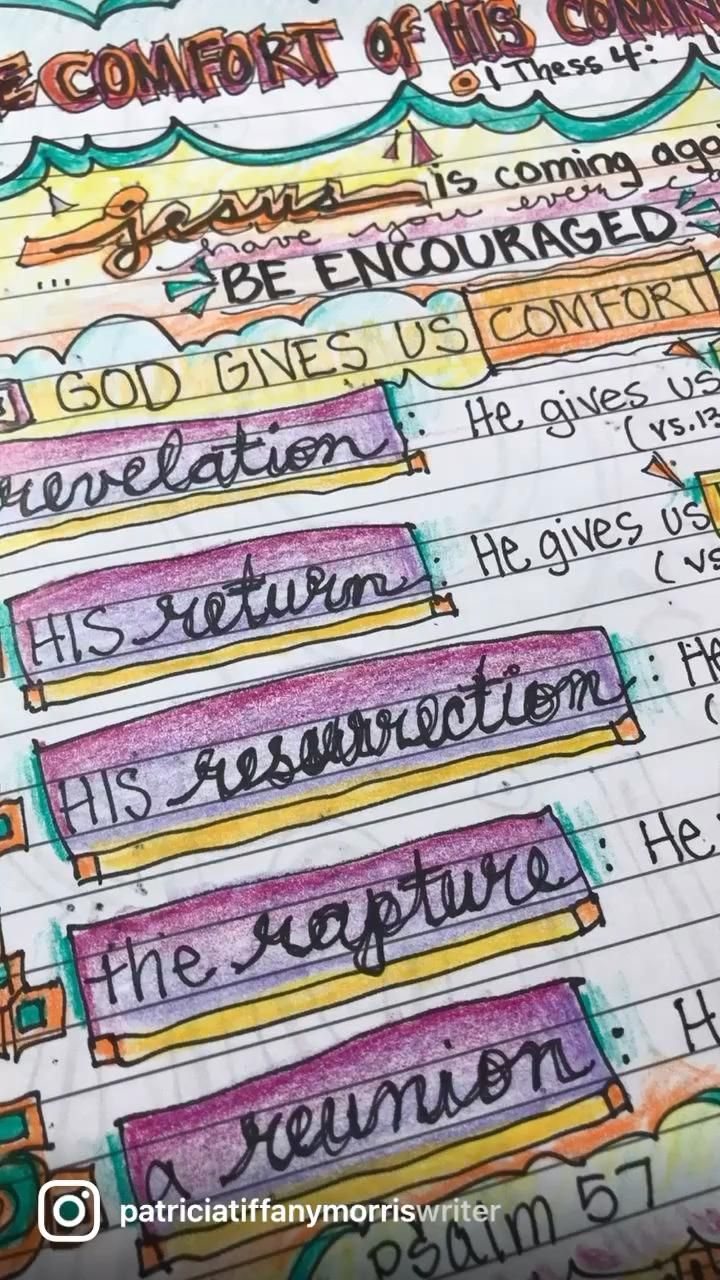 E COMFORT of HIS COMIN
1 Thess 4:
jesus is coming aga
have you ever
...
BE ENCOURAGED
GOD GIVES US COMFORT
revelation : He gives us
(vs.13
HIS return : He gives us
(vs
HIS resurrection : He
(
the rapture : He
a reunion : H
psalm 57
patriciatiffanymorriswriter